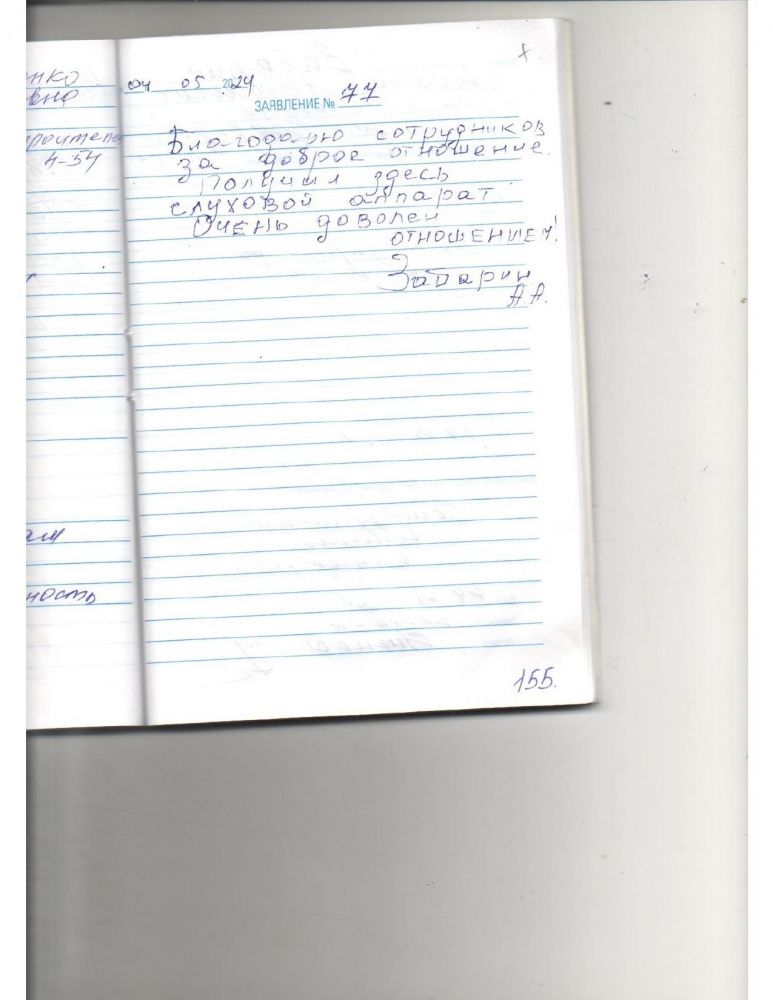 енко
вно
роителе
4-54
ам
ность
04 05 2024
ЗАЯВЛЕНИЕ № 77
Благодарю сотрудников
за доброе отношение.
Получил здесь
слуховой аппарат.
Очень доволен
отношением!
Запарин
А.А.
155.